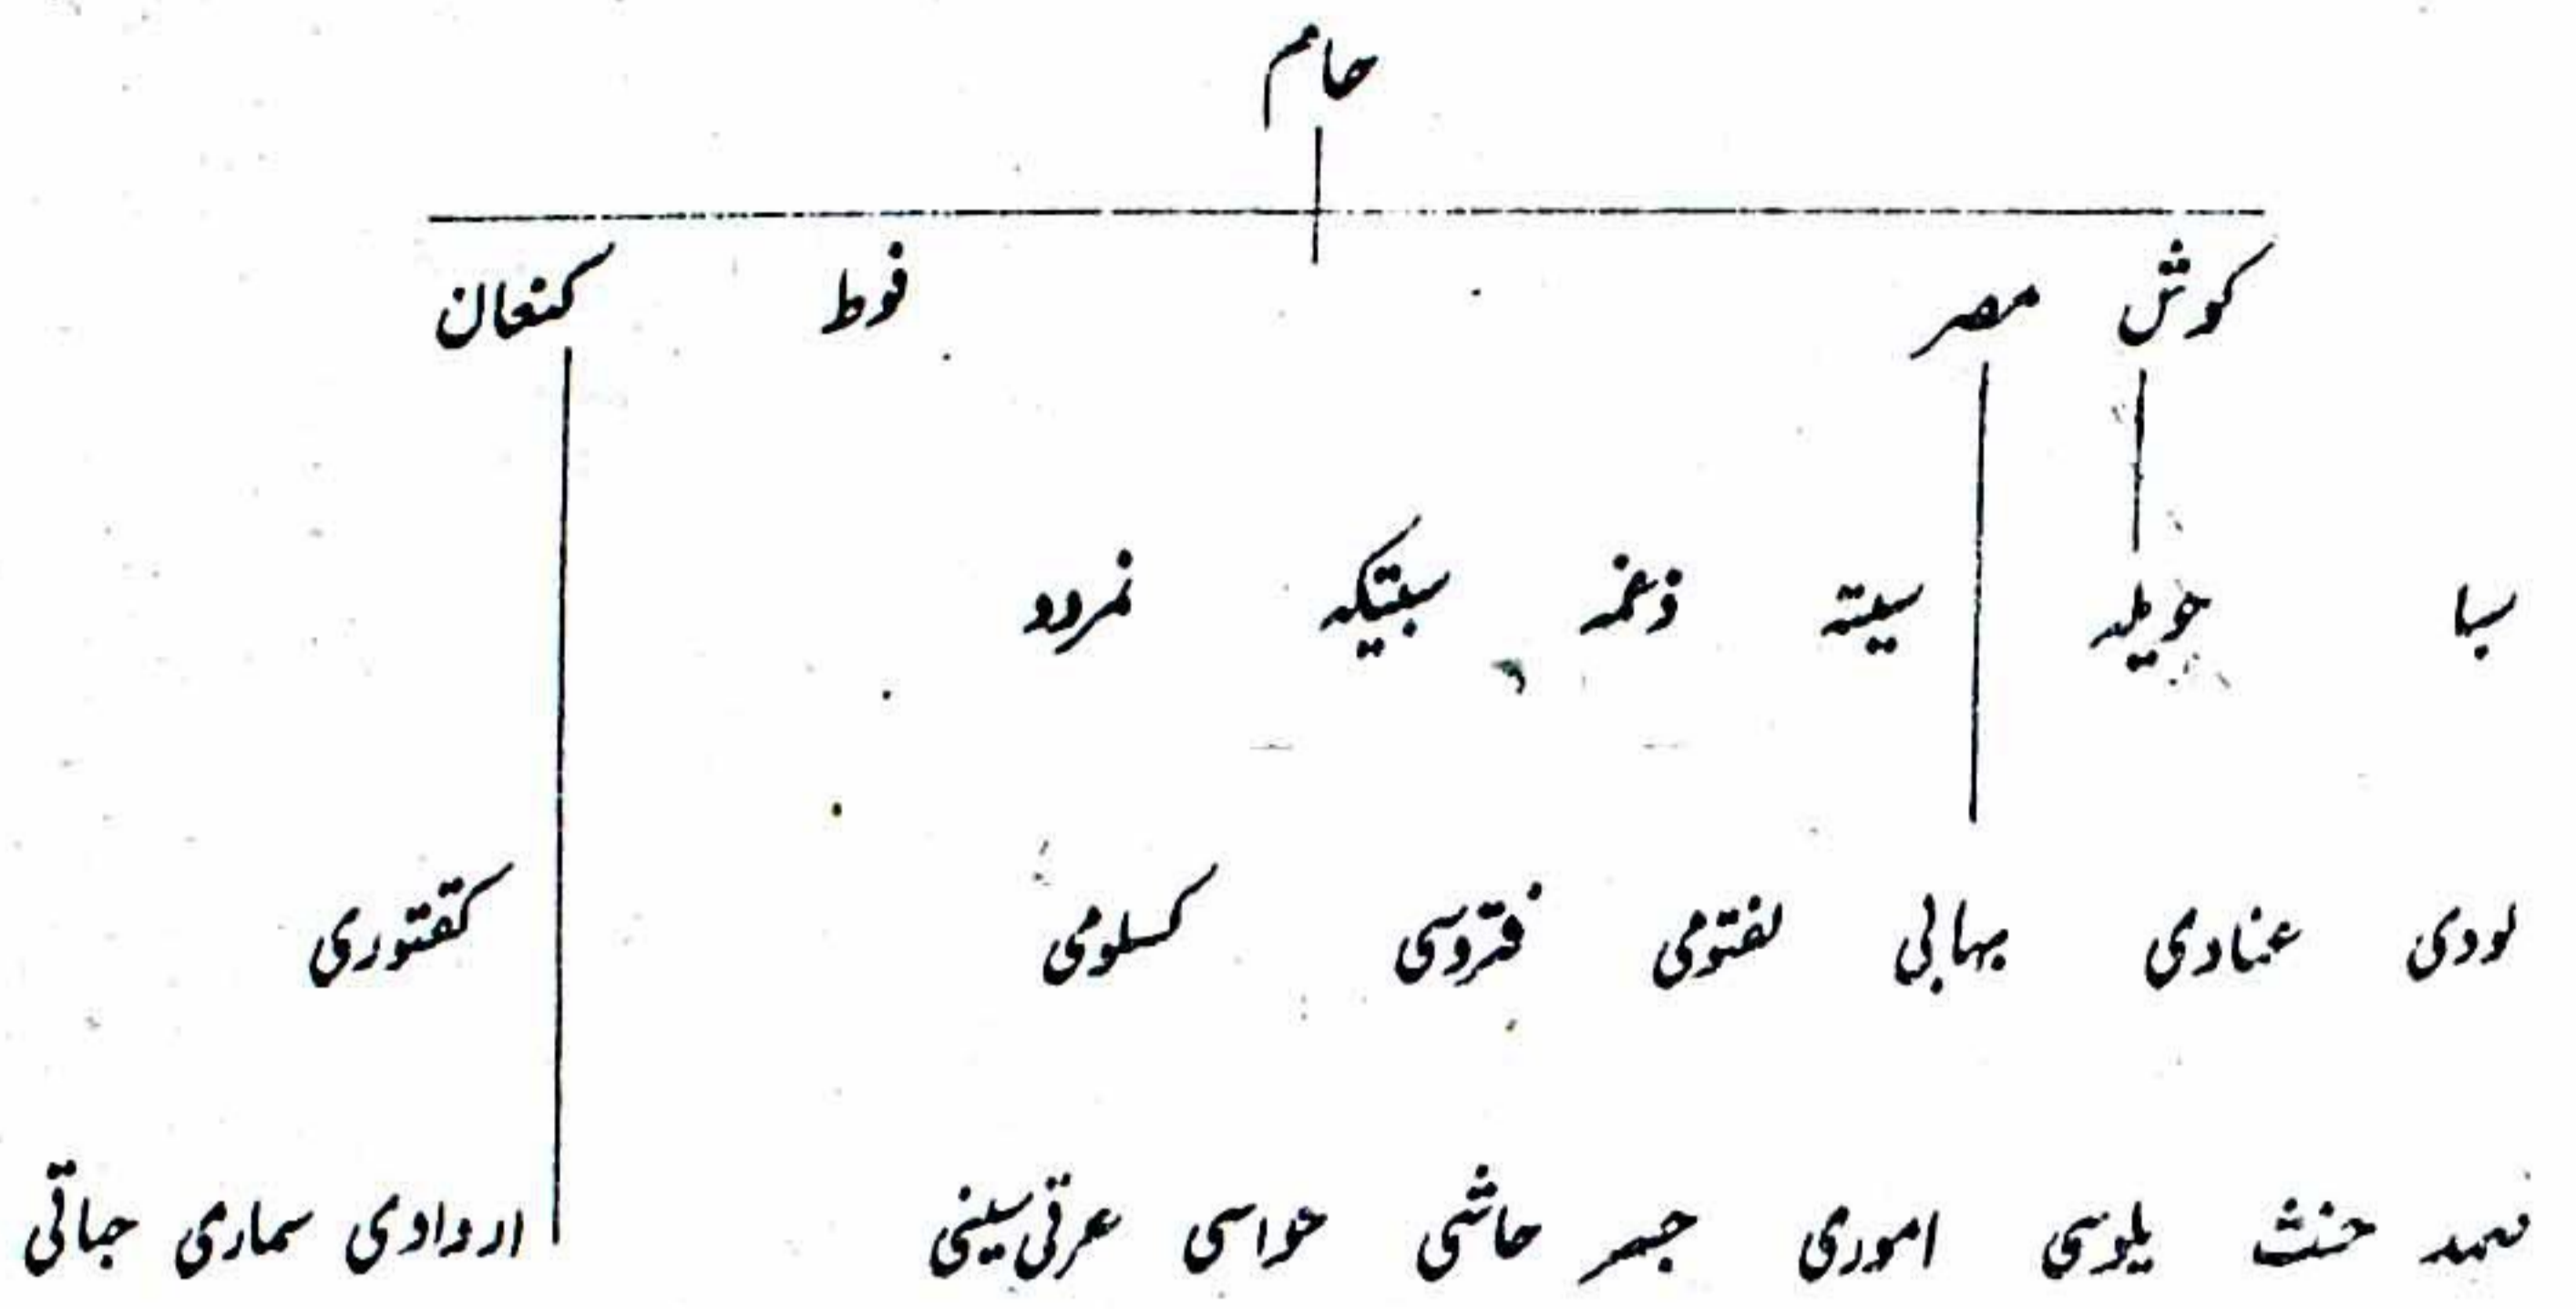 حام
کوش مصر فوط کنعان
سبا حویلہ سیتہ ذغمہ سبتیکہ نمرود
لودی عنادی بہابی لفتومی فتروسی کسلومی کفتوری
حنث یلوسی اموری جسر حاشی حواسی عرقی سینی اروادی سماری جباتی